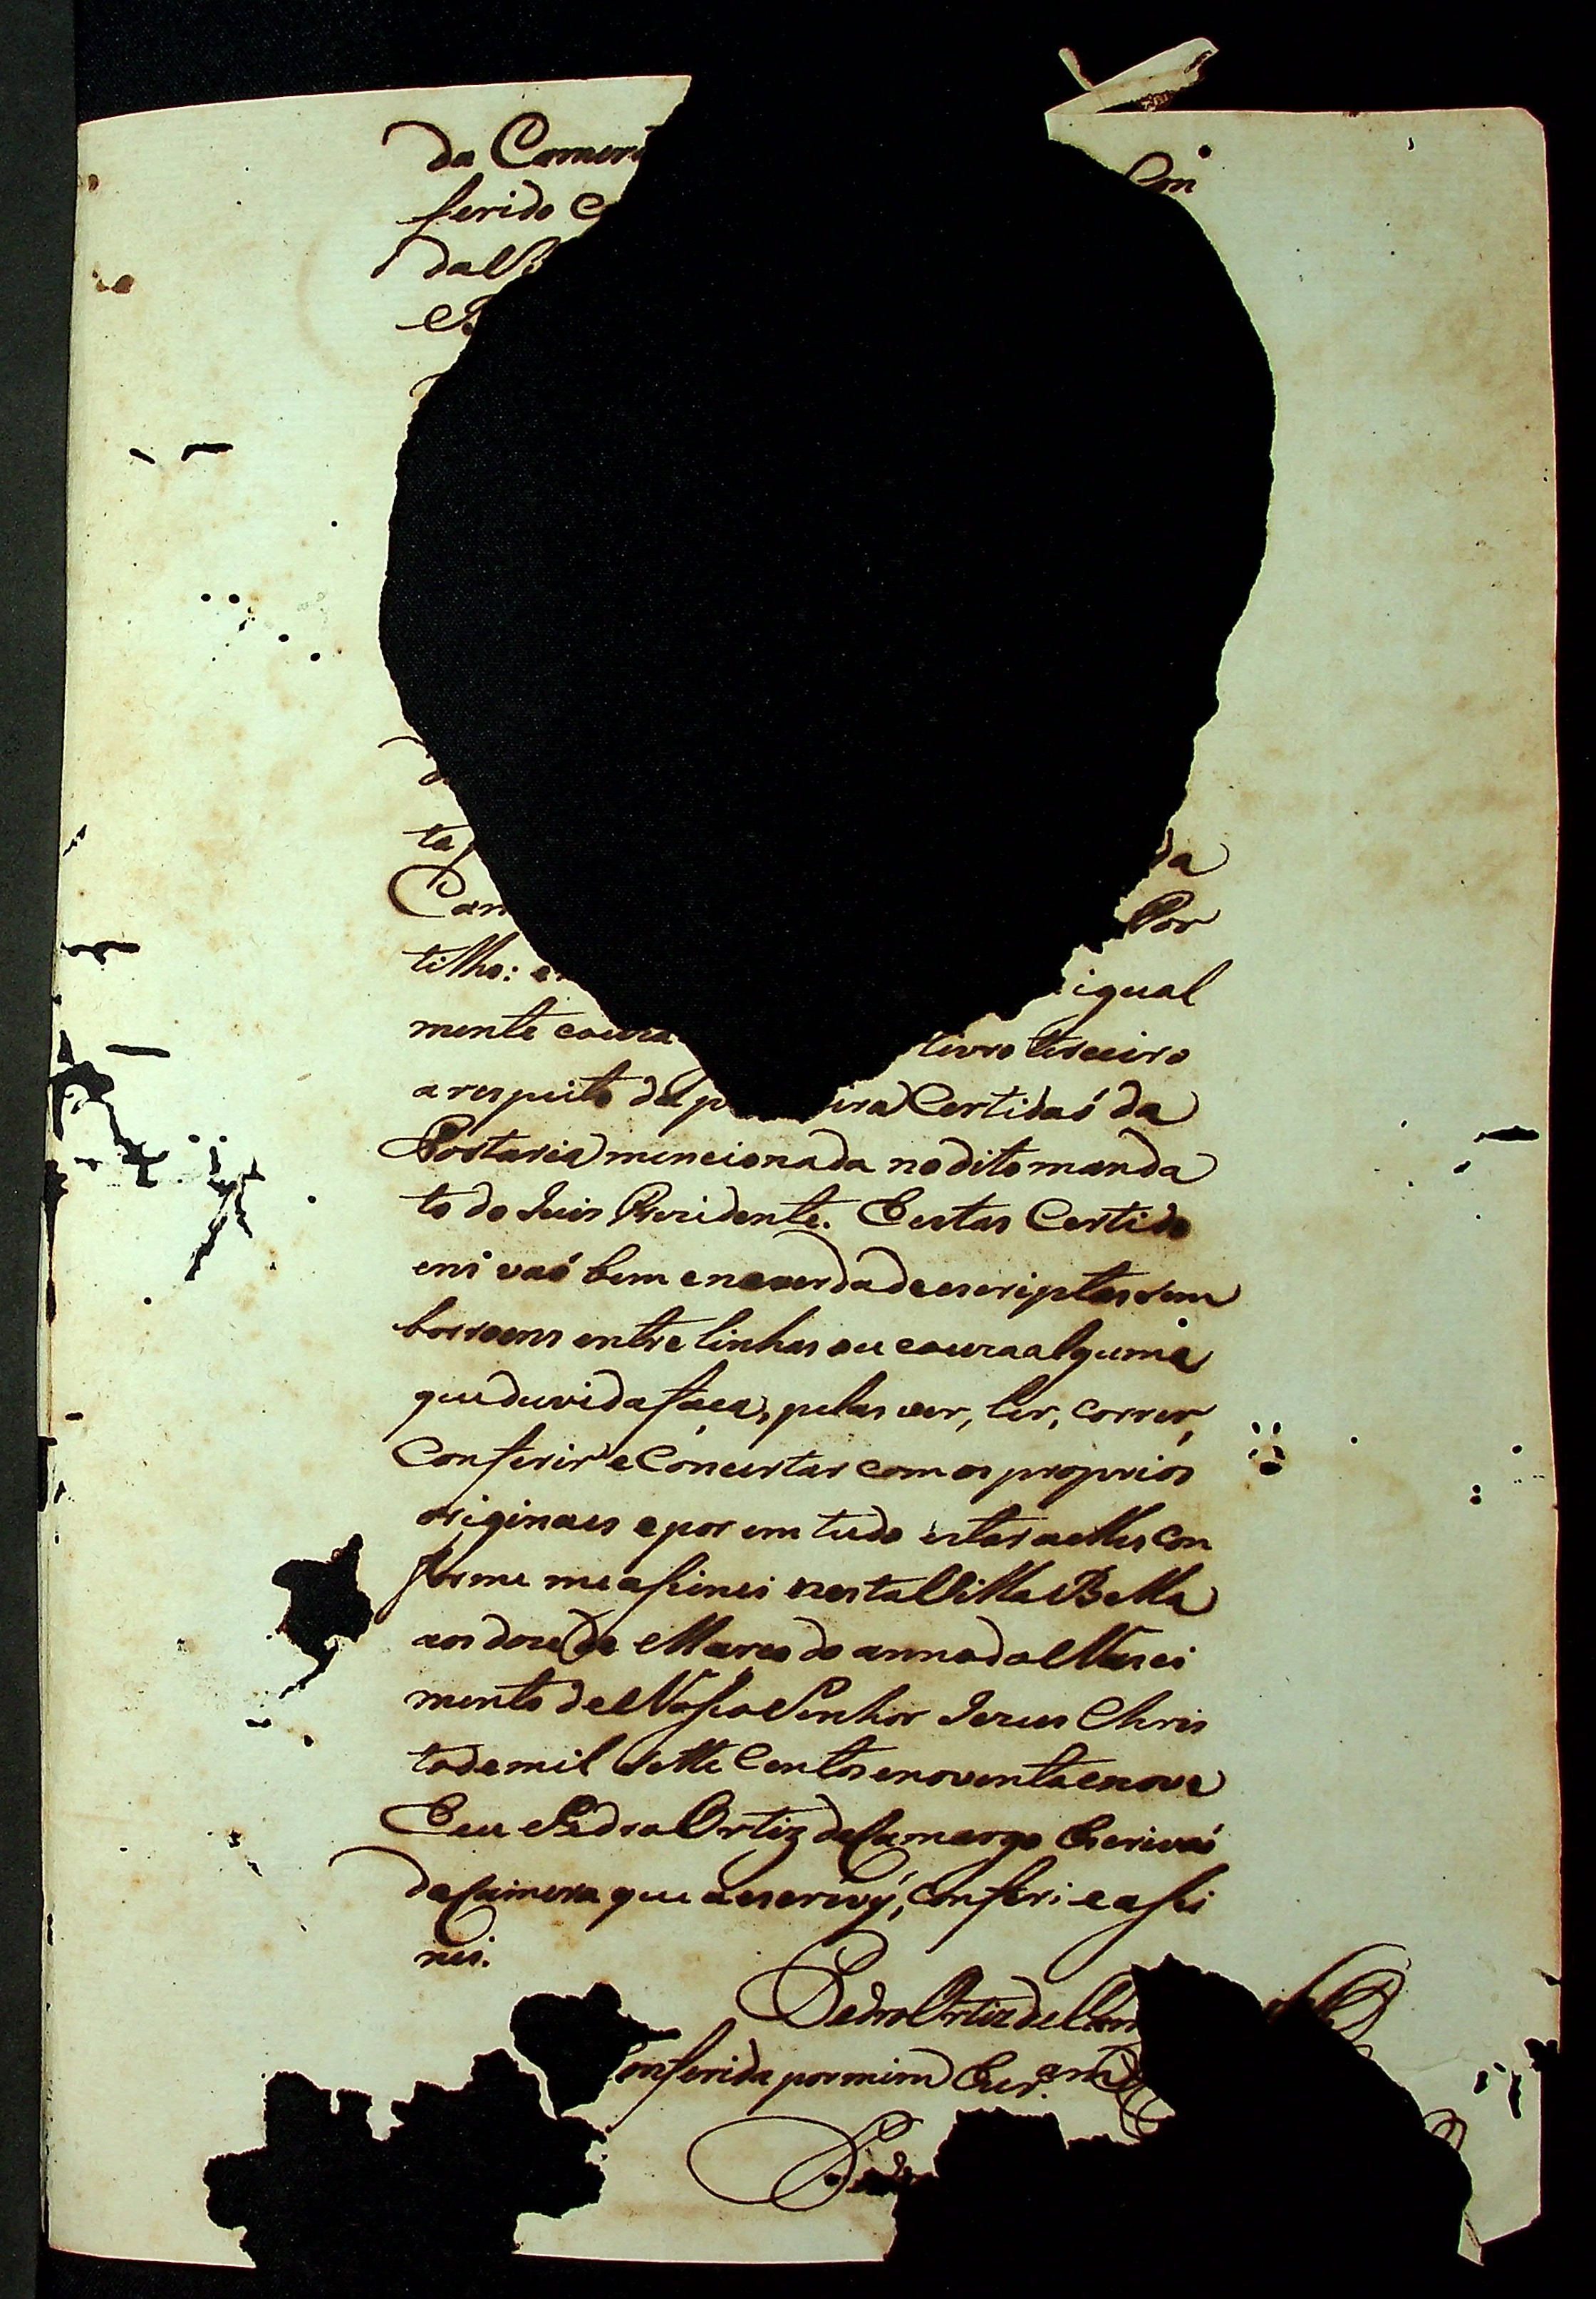 da Camer
Con
ferido
dal
e
ta
da
Cam
Por
tilho: e
igual
mente couza livro terceiro
a respeito da p ira Certidaó da
Portaria mencionada no dito manda
to do Juis Prezidente. E estas Certido
ens vaó bem e na verdade escriptas sem
borroens entre linhas ou couza alguma
que duvida faça, pelas ver, ler, correr,
Conferir e Concertar com os proprios
originaes e por em tudo estar a elles con
forme me asinei nesta Villa Bella
aos doze de Março do anno do Nasci
mento de Nosso Senhor Jezus Chris
to de mil sette Centos e noventa e nove
Eu Pedro Ortiz de Camargo Escrivaó
da Camera que a escrevý, conferi e asi
nei.
Pedro Ortiz de Cam
onferida por mim Escr.am
Pedro